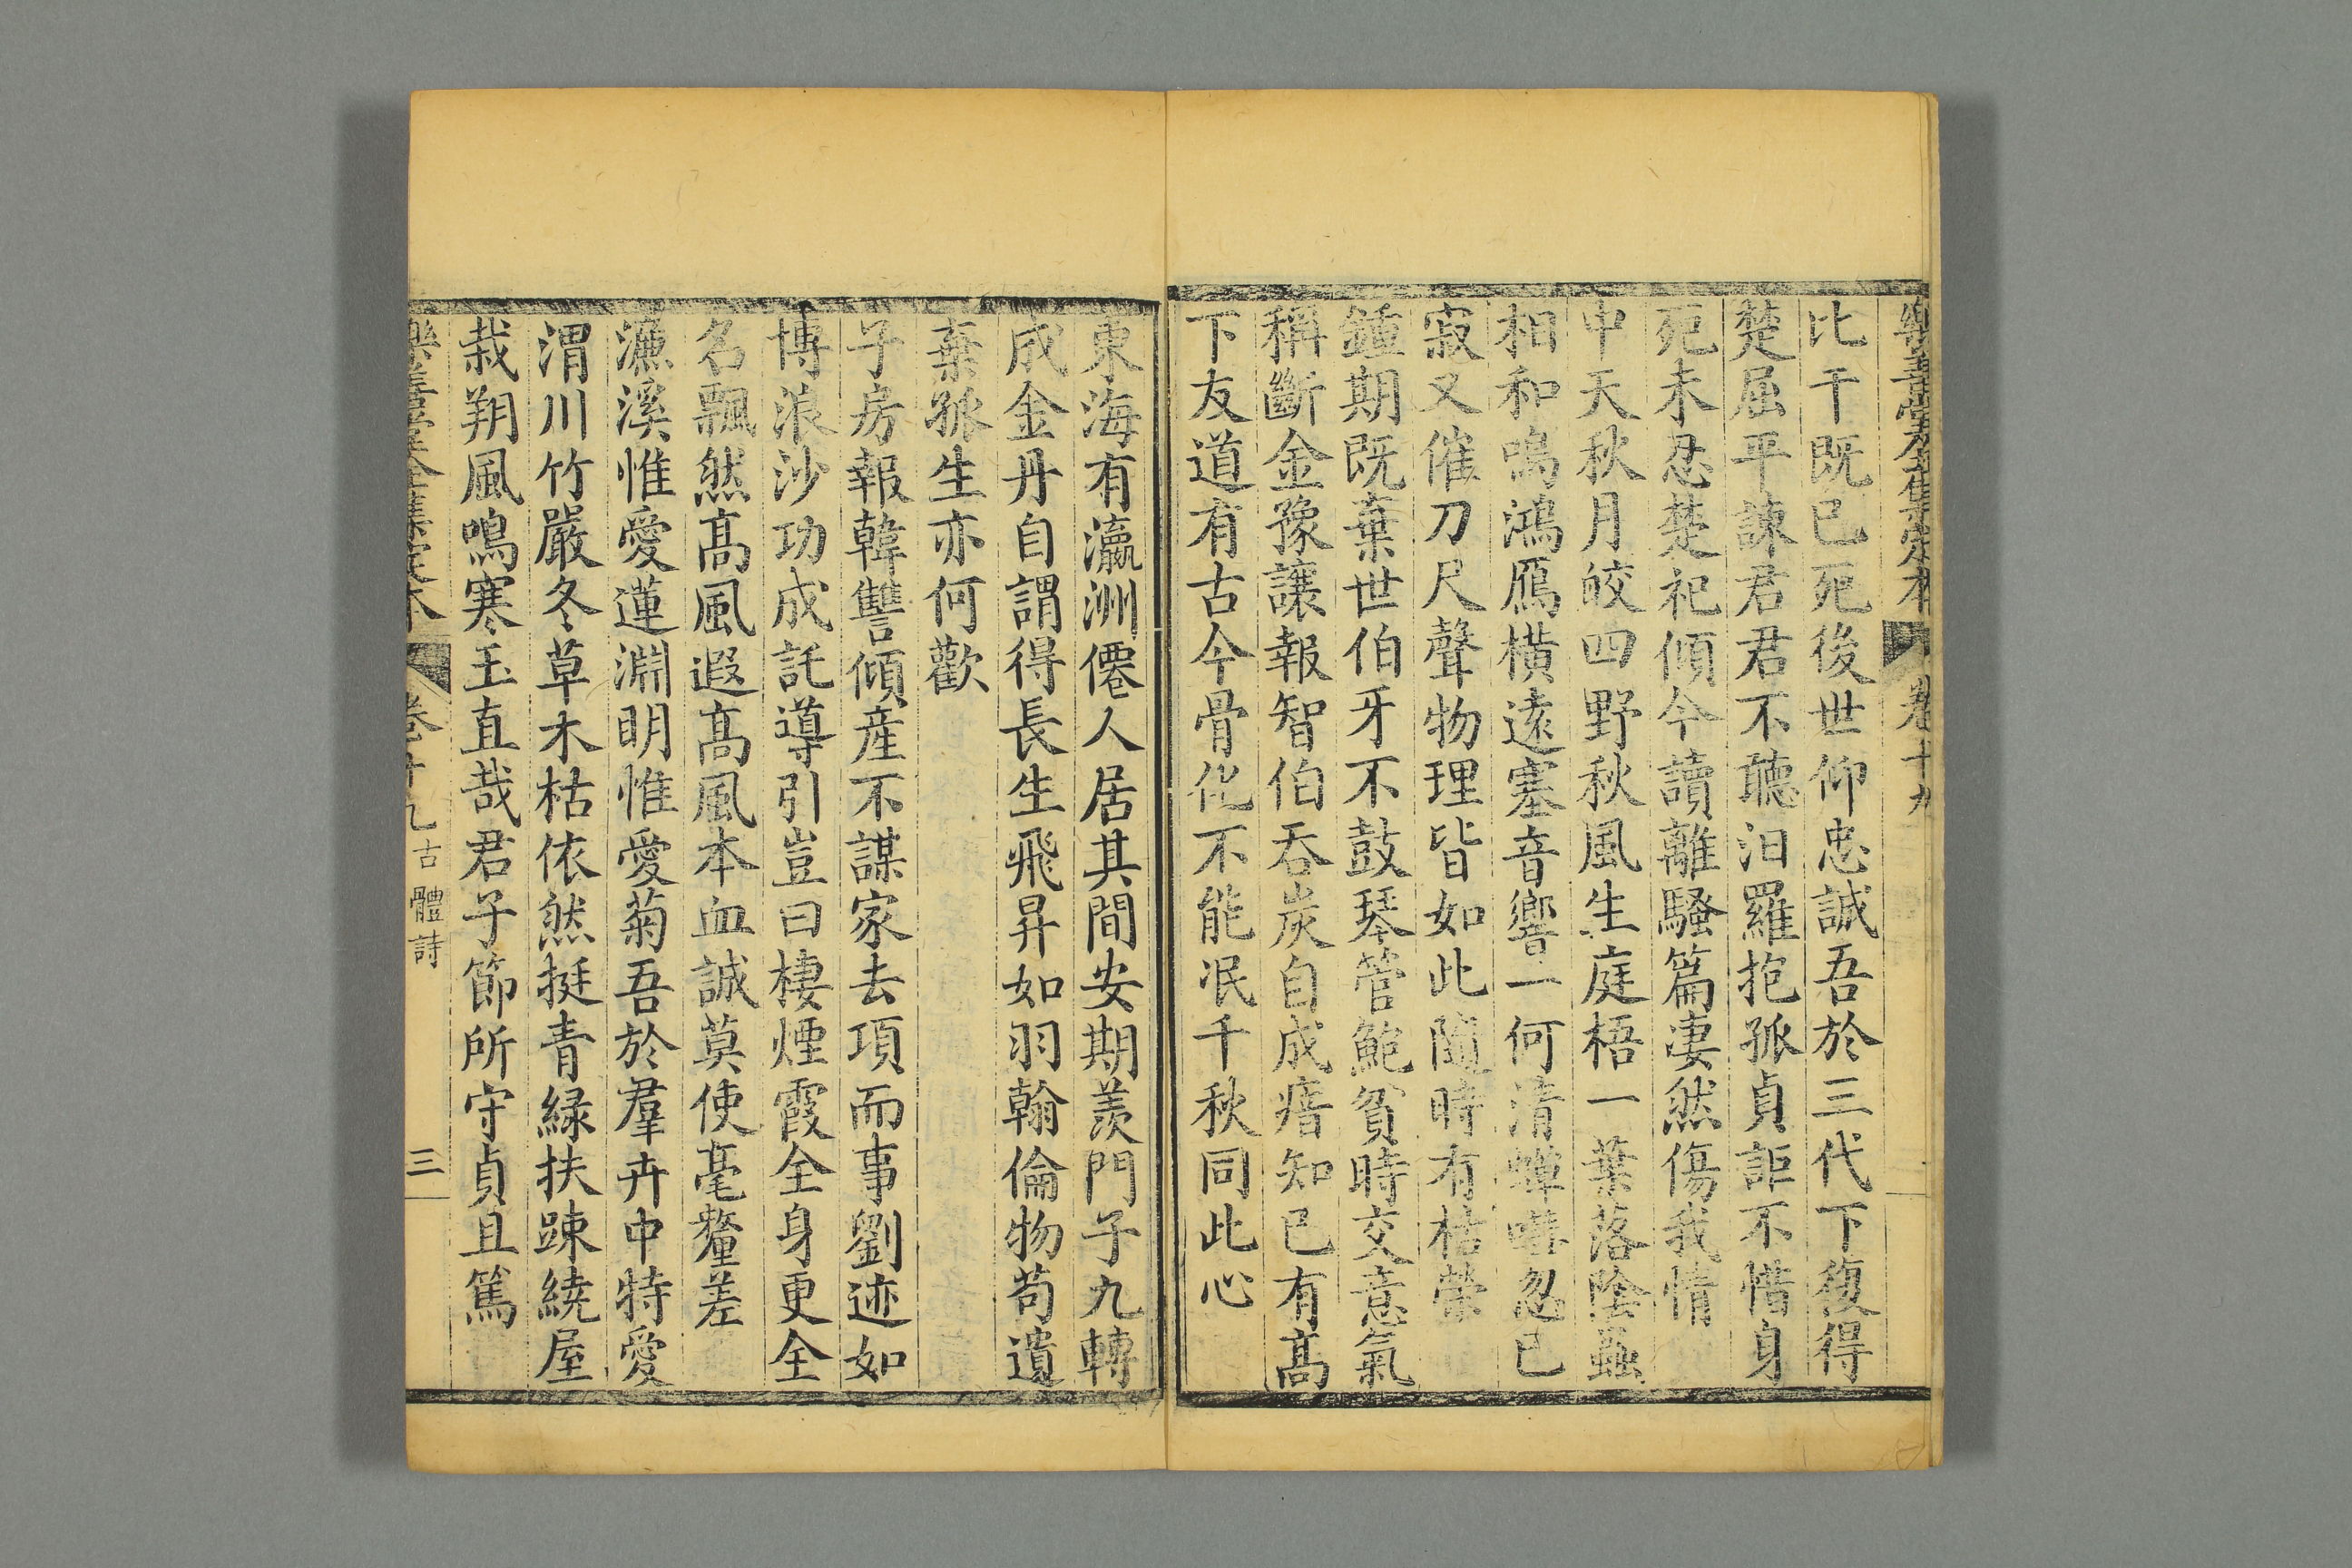 樂善堂全集定本 卷十九
比干既已死後世仰忠誠吾於三代下復得
楚屈平諫君君不聽汨羅抱孤貞詎不惜身
死未忍楚祀傾今讀離騷篇凄然傷我情
中天秋月皎四野秋風生庭梧一葉落陰蟲
相和鳴鴻鴈橫遠塞音響一何清蟬嘒忽已
寂又催刀尺聲物理皆如此隨時有枯榮
鍾期既棄世伯牙不鼓琴管鮑貧時交意氣
稱斷金豫讓報智伯吞炭自成瘖知已有高
下友道有古今骨化不能泯千秋同此心
東海有瀛洲僊人居其間安期羨門子九轉
成金丹自謂得長生飛昇如羽翰倫物苟遺
棄孤生亦何歡
子房報韓讐傾産不謀家去項而事劉迹如
博浪沙功成託導引豈曰棲煙霞全身更全
名飄然高風遐高風本血誠莫使毫釐差
濂溪惟愛蓮淵明惟愛菊吾於羣卉中特愛
渭川竹嚴冬草木枯依然挺青緑扶踈繞屋
栽朔風鳴寒玉直哉君子節所守貞且篤
樂善堂全集定本 卷十九 古體詩 三